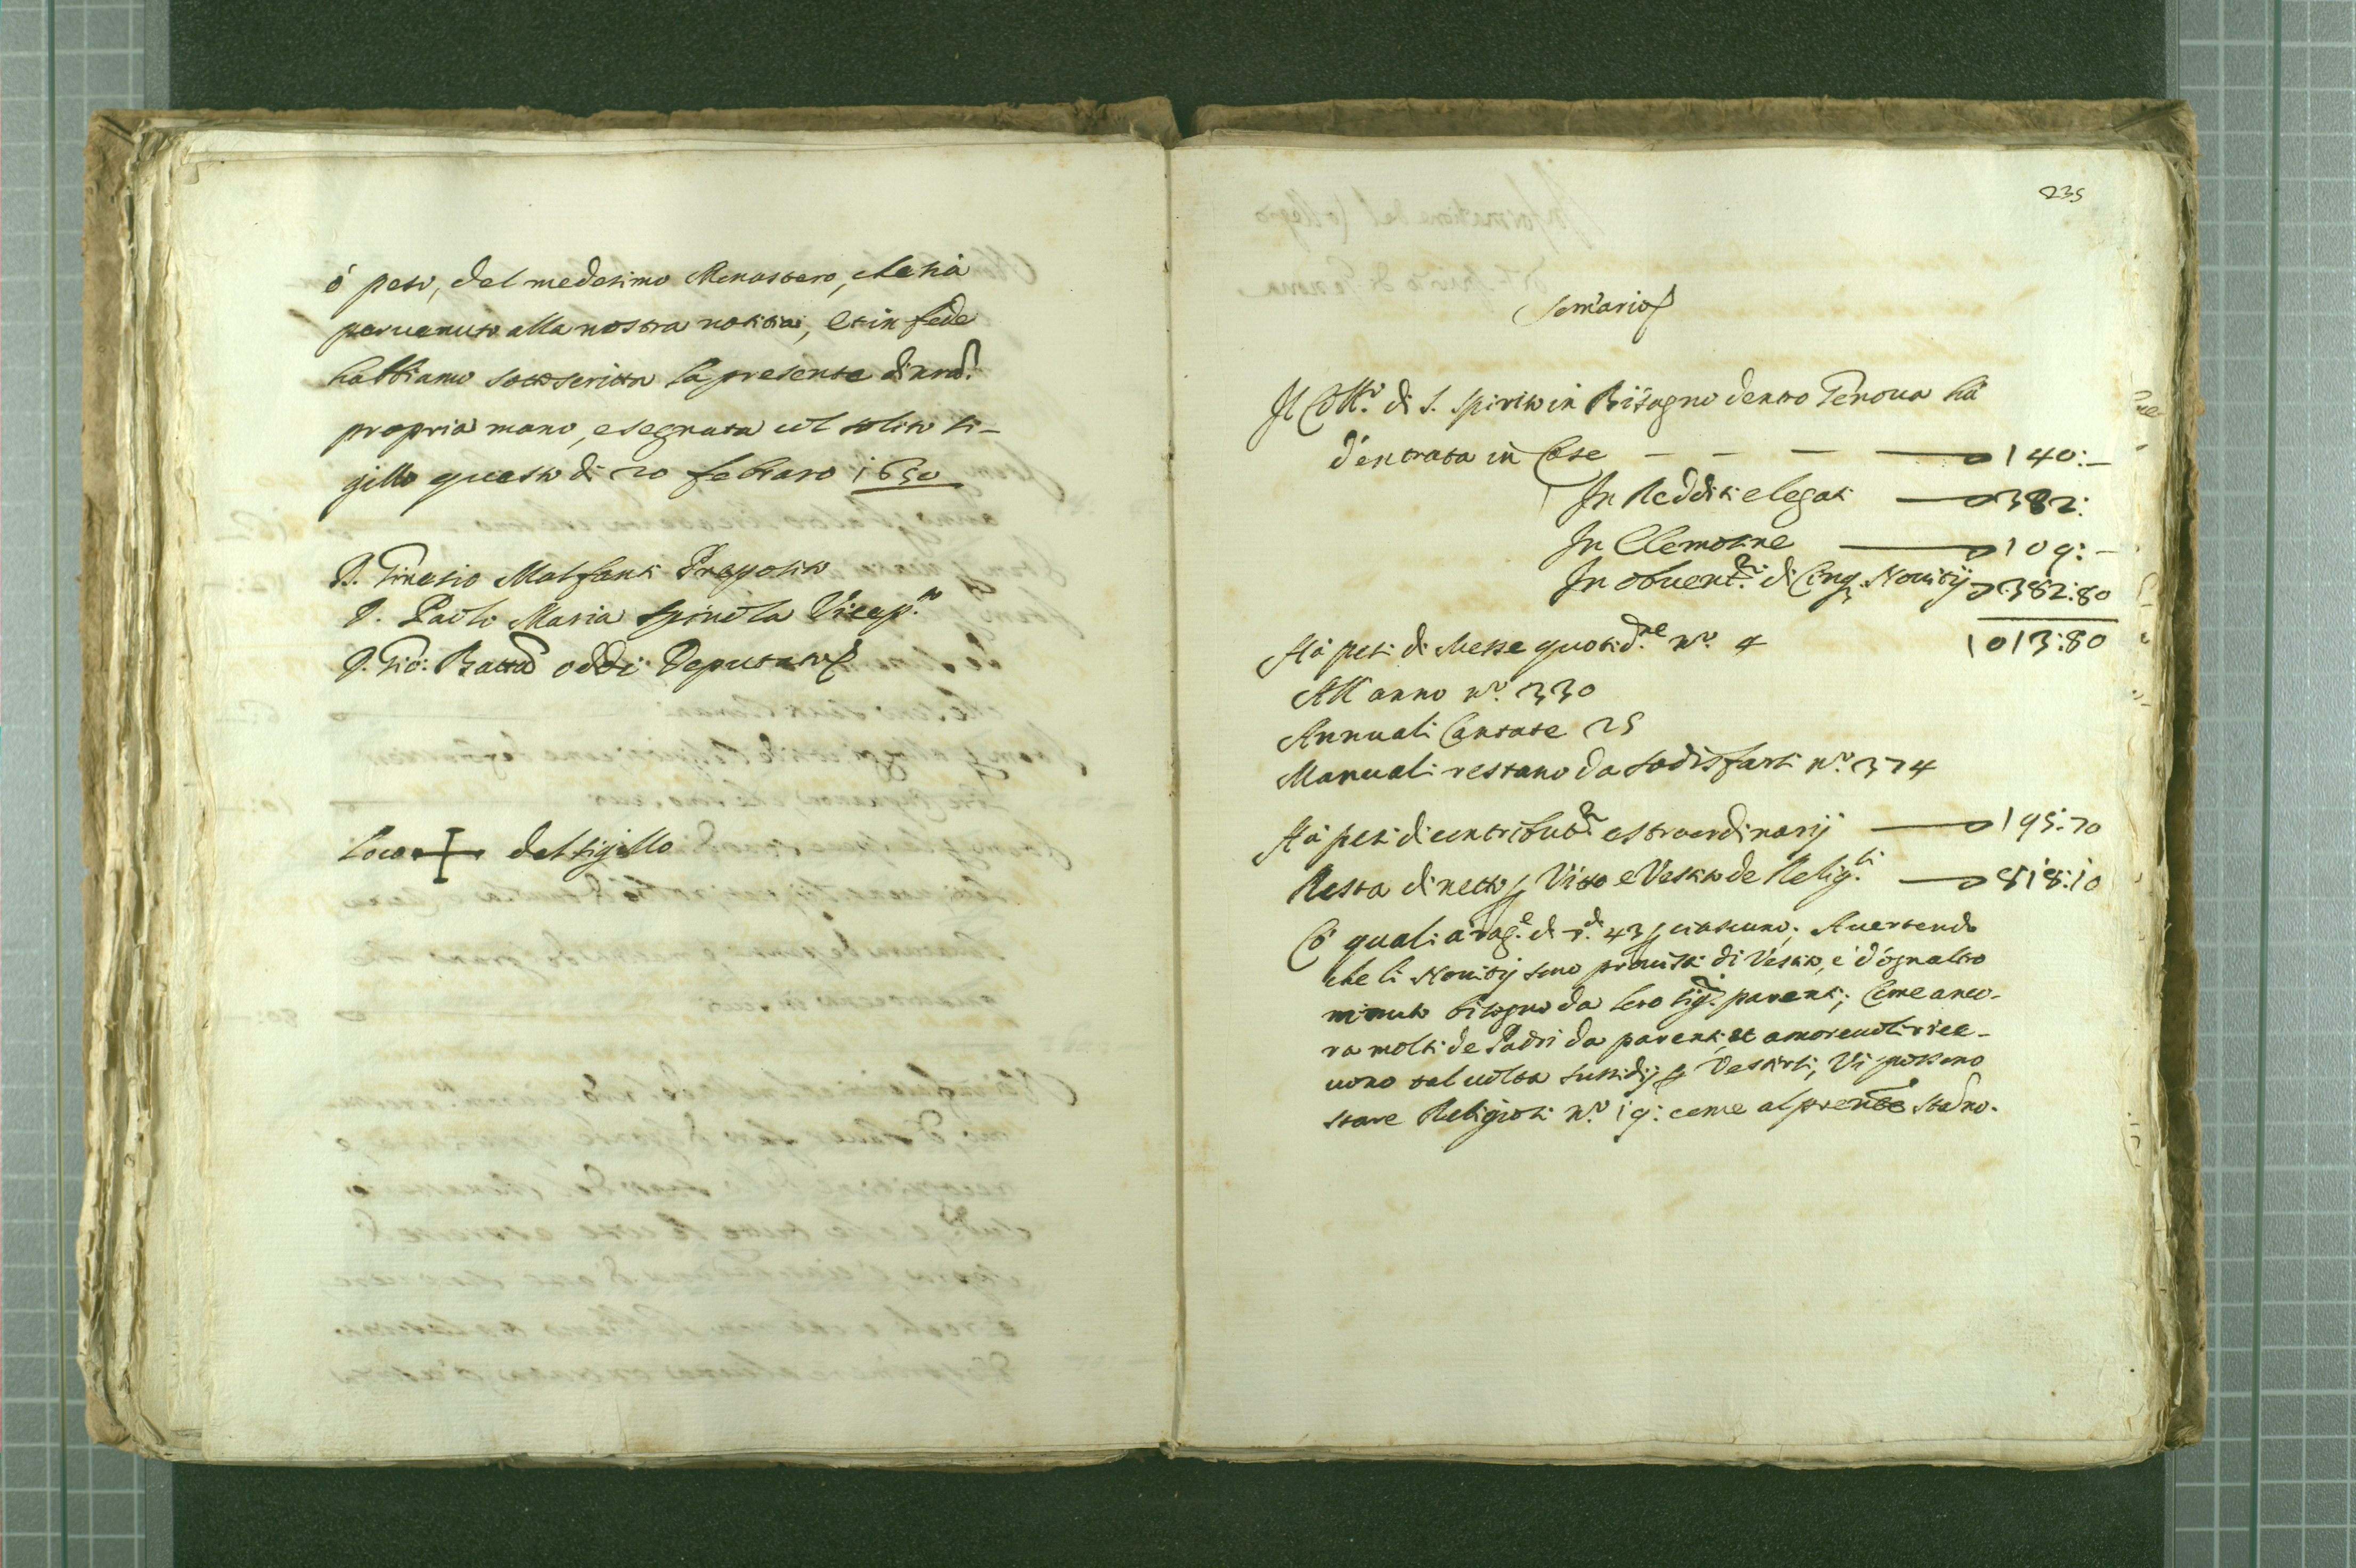 ó peso, del medesimo Monastero, che sia
pervenuto alla nostra notitia, Et in fede
habbiamo sottoscritta la presente di nrã
propria mano, e segnata col solito si-
gillo questo di 20 febraro 1650
D. Ginesio Malfanti Preposito
D. Paolo Maria Spinola Vicep.to
D. Gio: Batta Oddi Deputato
Loco + del sigillo
235
Somario
Il Coll.o di S. Spirito in Bisagno dentro Genova hà
d'entrata in Case — — — — 140:—
In Redditi e legati — 382:
In Elemosine — 109:—
In obvent.ni di Cinq. Novitij 382:80
1013:80
Hà pesi di Messe quotid.ne n.o 4
All anno n.o 330
Annuali Cantate 25
Manuali restano da sodisfarsi n.o 374
Hà pesi di contribut.ni estraordinarij — 195:70
Resta di netto p Vitto e Vestito de Relig.si — 818:10
Cò quali à rag.e di s.di 43 p ciascuno; Avertendo
che li Novitij sono provisti di Vestito, e d'ogn altro
minuto bisogno da loro sig.ri parenti; Come anco-
ra molti de Padri da parenti, et amorevoli rice-
vono tal volta sussidij p Vestirsi; Vi possono
stare Religiosi n.o 19: come al prente stãno.